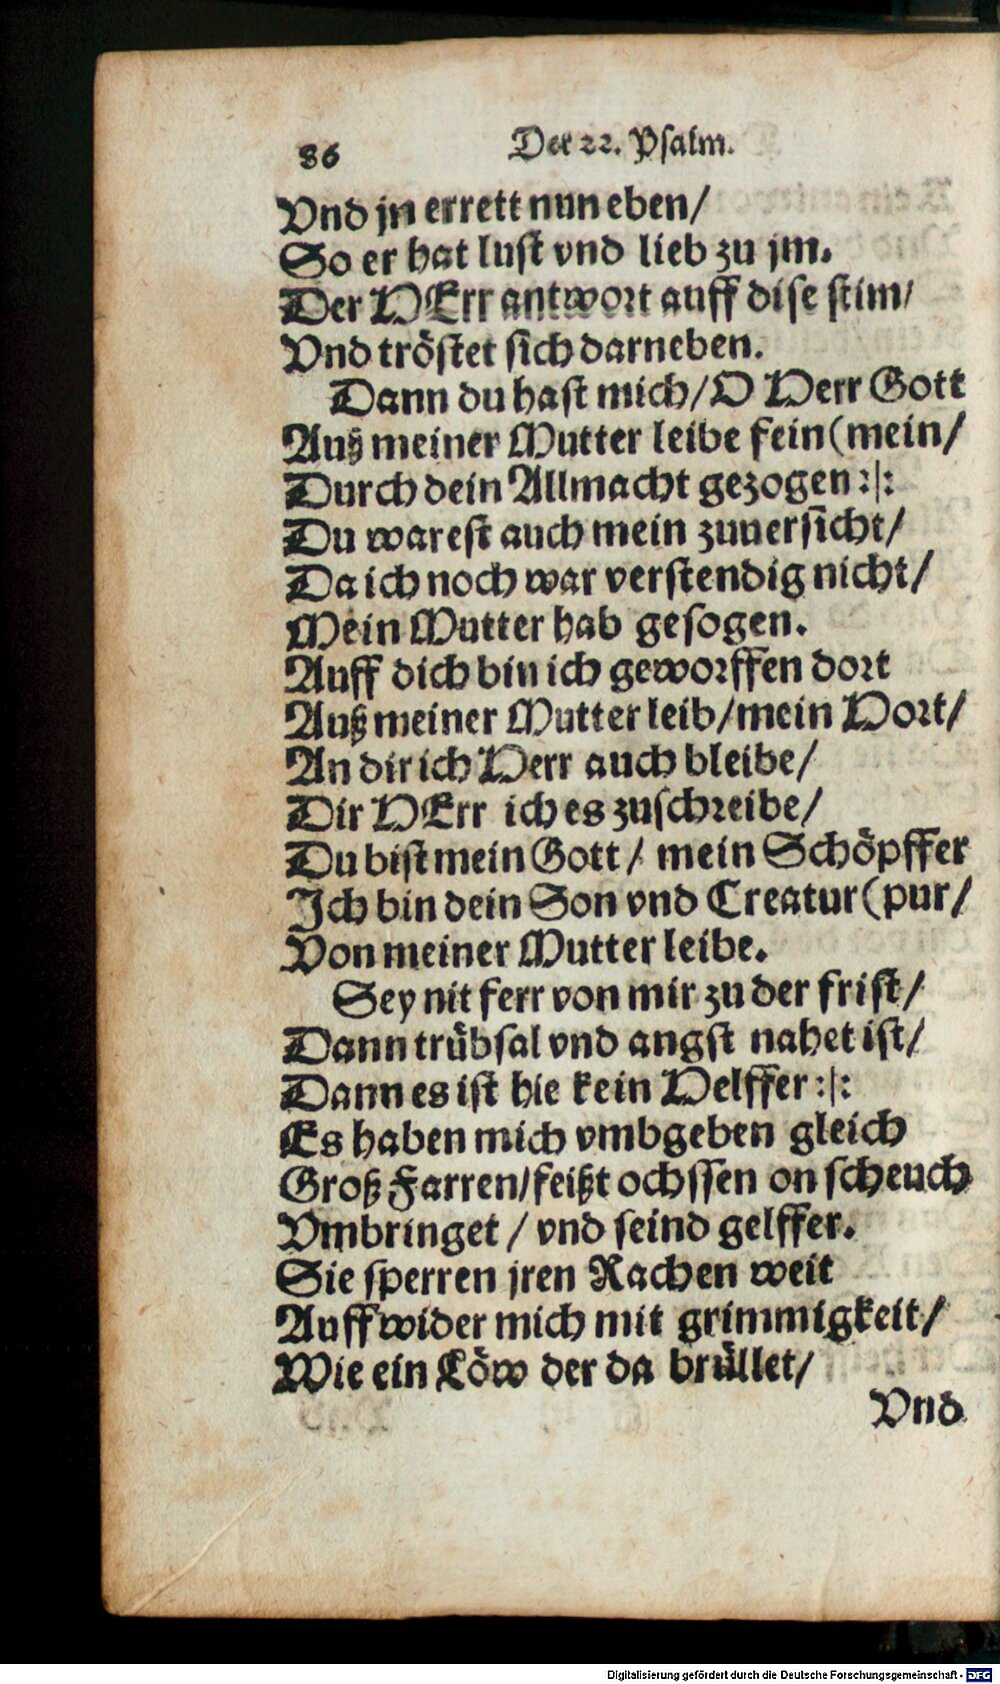 86 Der 22. Psalm.
Vnd jn errett nun eben/
So er hat lust vnd lieb zu jm.
Der HErr antwort auff dise stim/
Vnd tröstet sich darneben.
Dann du hast mich/O Herr Gott
Auß meiner Mutter leibe fein(mein/
Durch dein Allmacht gezogen:|:
Du warest auch mein zuuersicht/
Da ich noch war verstendig nicht/
Mein Mutter hab gesogen.
Auff dich bin ich geworffen dort
Auß meiner Mutter leib/mein Hort/
An dir ich Herr auch bleibe/
Dir HErr ich es zuschreibe/
Du bist mein Gott/ mein Schöpffer
Ich bin dein Son vnd Creatur(pur/
Von meiner Mutter leibe.
Sey nit ferr von mir zu der frist/
Dann trübsal vnd angst nahet ist/
Dann es ist hie kein Helffer:|:
Es haben mich vmbgeben gleich
Groß Farren/feißt ochssen on scheuch
Vmbringet / vnd seind gelffer.
Sie sperren jren Rachen weit
Auff wider mich mit grimmigkeit/
Wie ein Löw der da brüllet/
Vnd
Digitalisierung gefördert durch die Deutsche Forschungsgemeinschaft - DFG